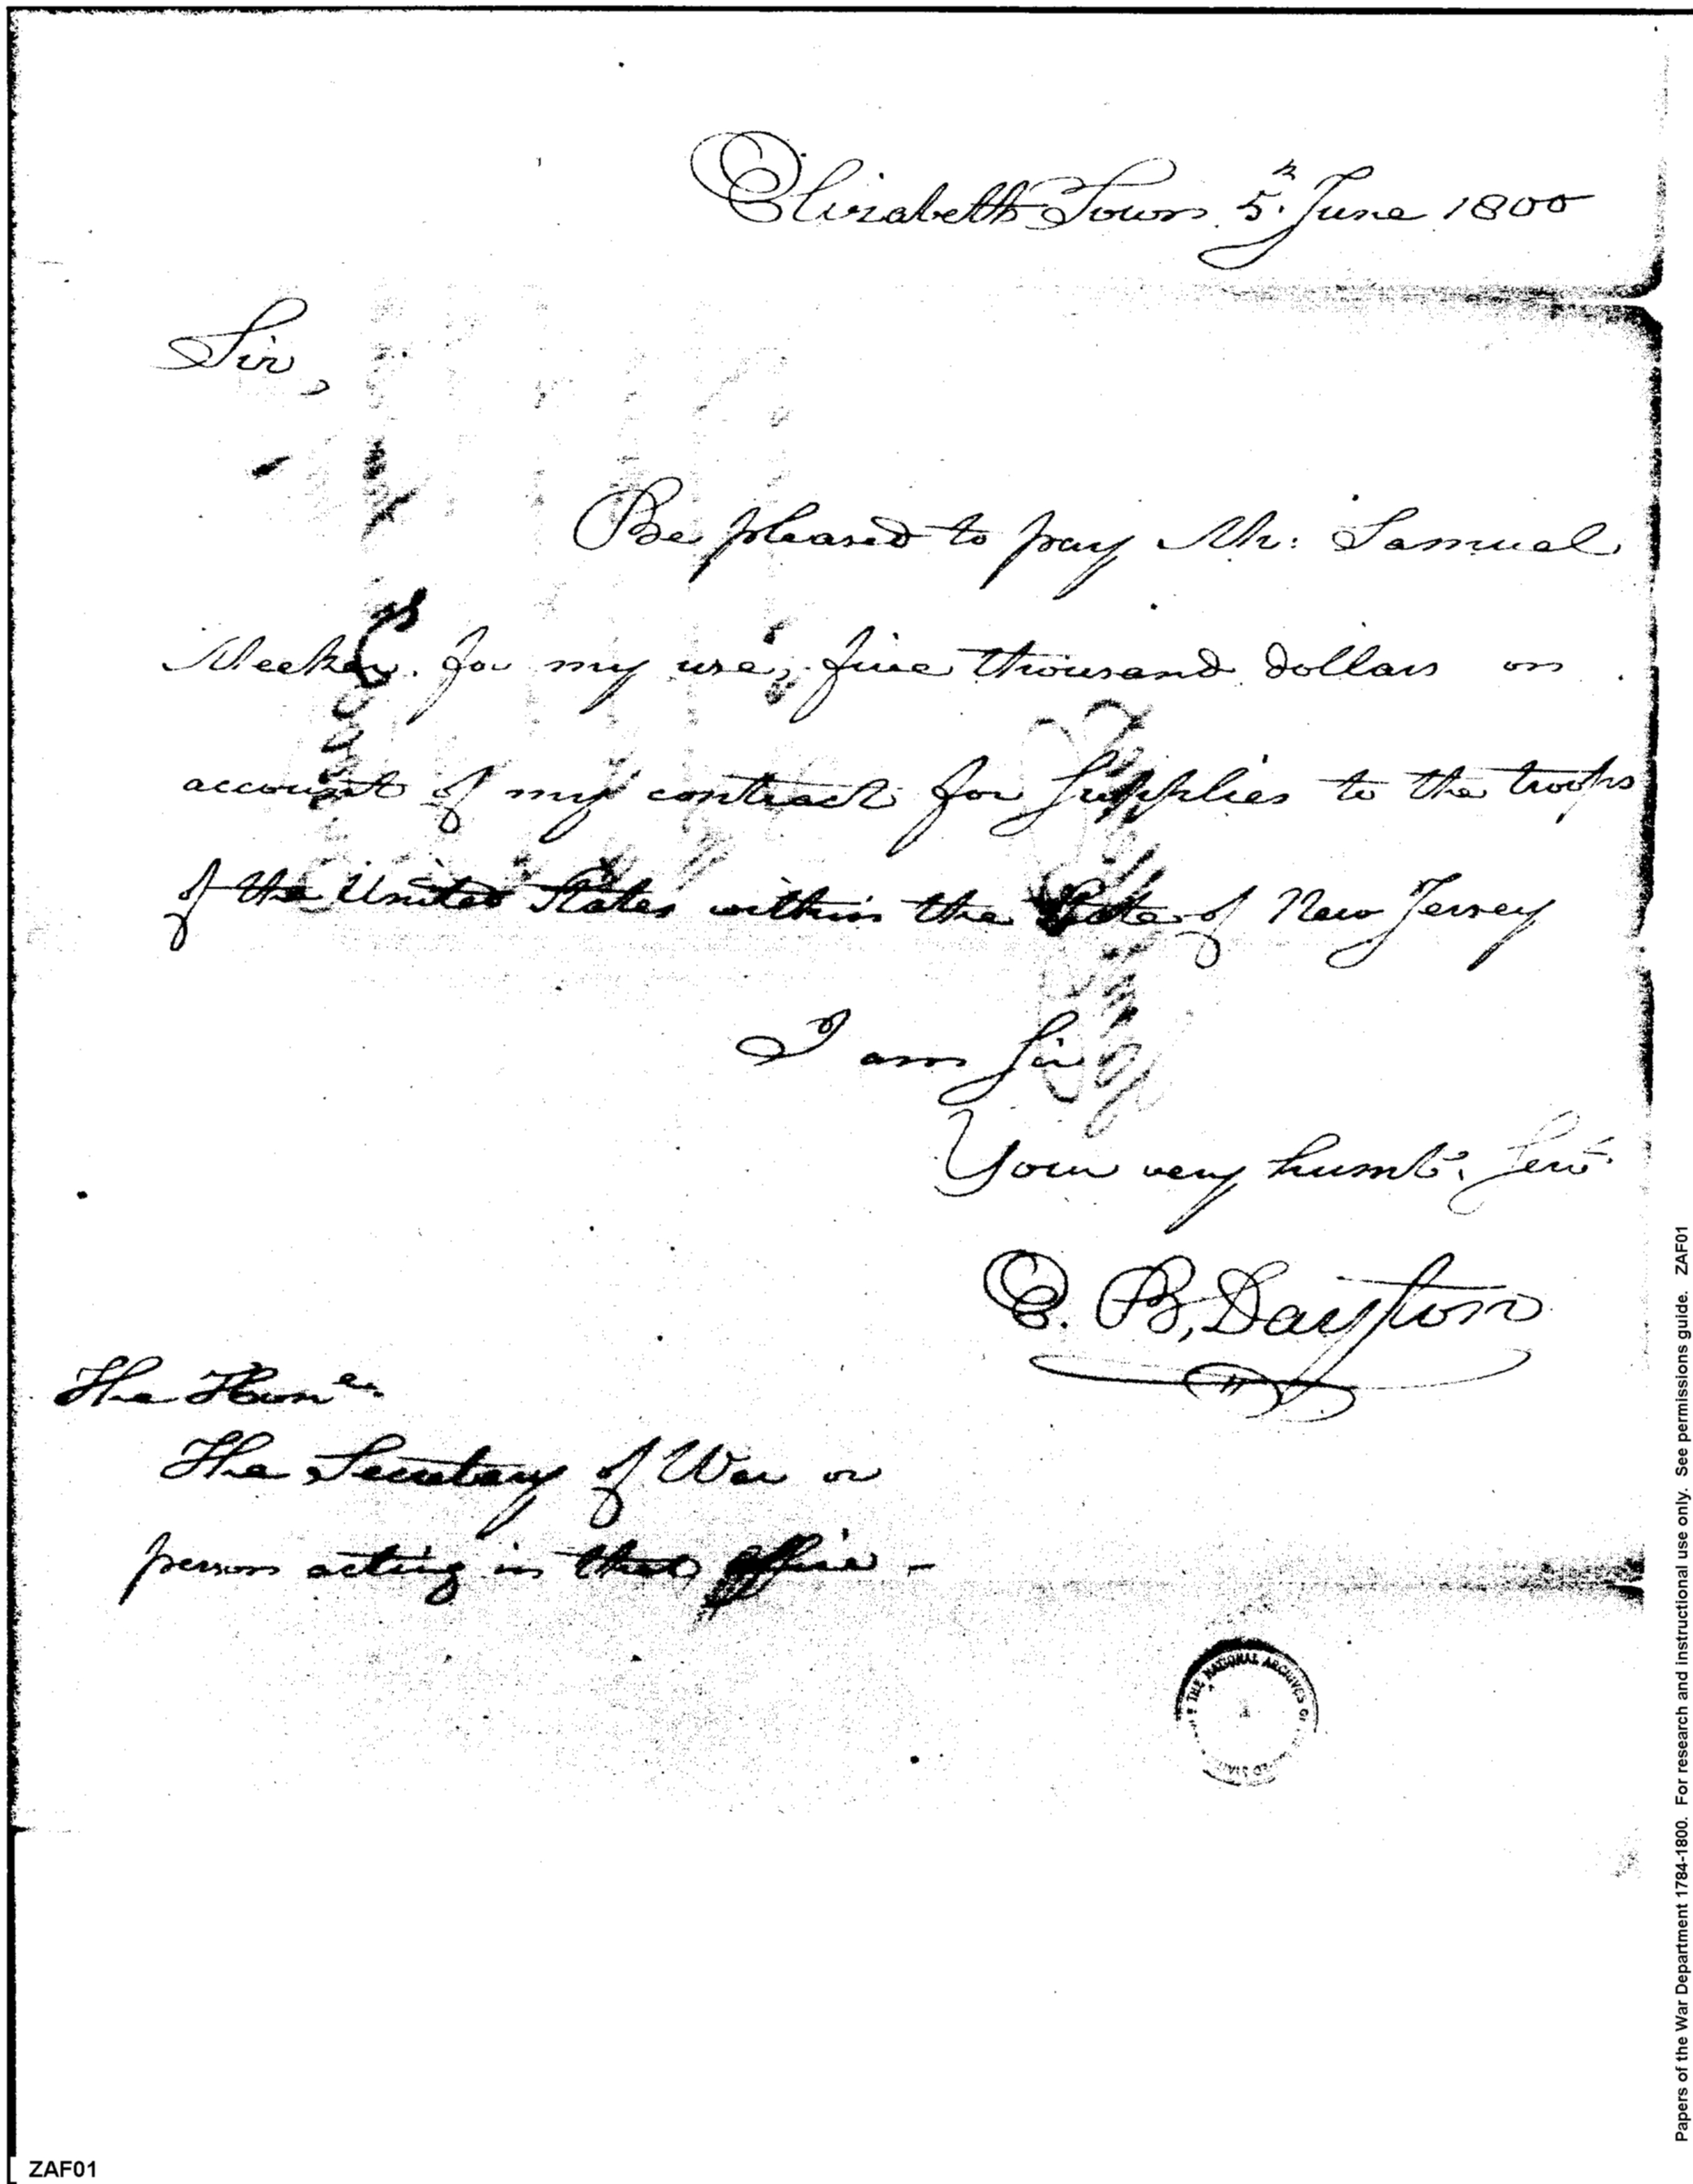 Elizabeth Town 5th June 1800
Sir,
Be pleased to pay Mr: Samuel
Meeker for my use, five thousand dollars on
account of my contract for Supplies to the troops
of the United States within the State of New Jersey
I am Sir
Your very humbe. Servt.
E. B. Dayton
The Honble.
The Secretary of War or
person acting in that office -
THE NATIONAL ARCHIVES OF
ZAF01
Papers of the War Department 1784-1800. For research and instructional use only. See permissions guide. ZAF01